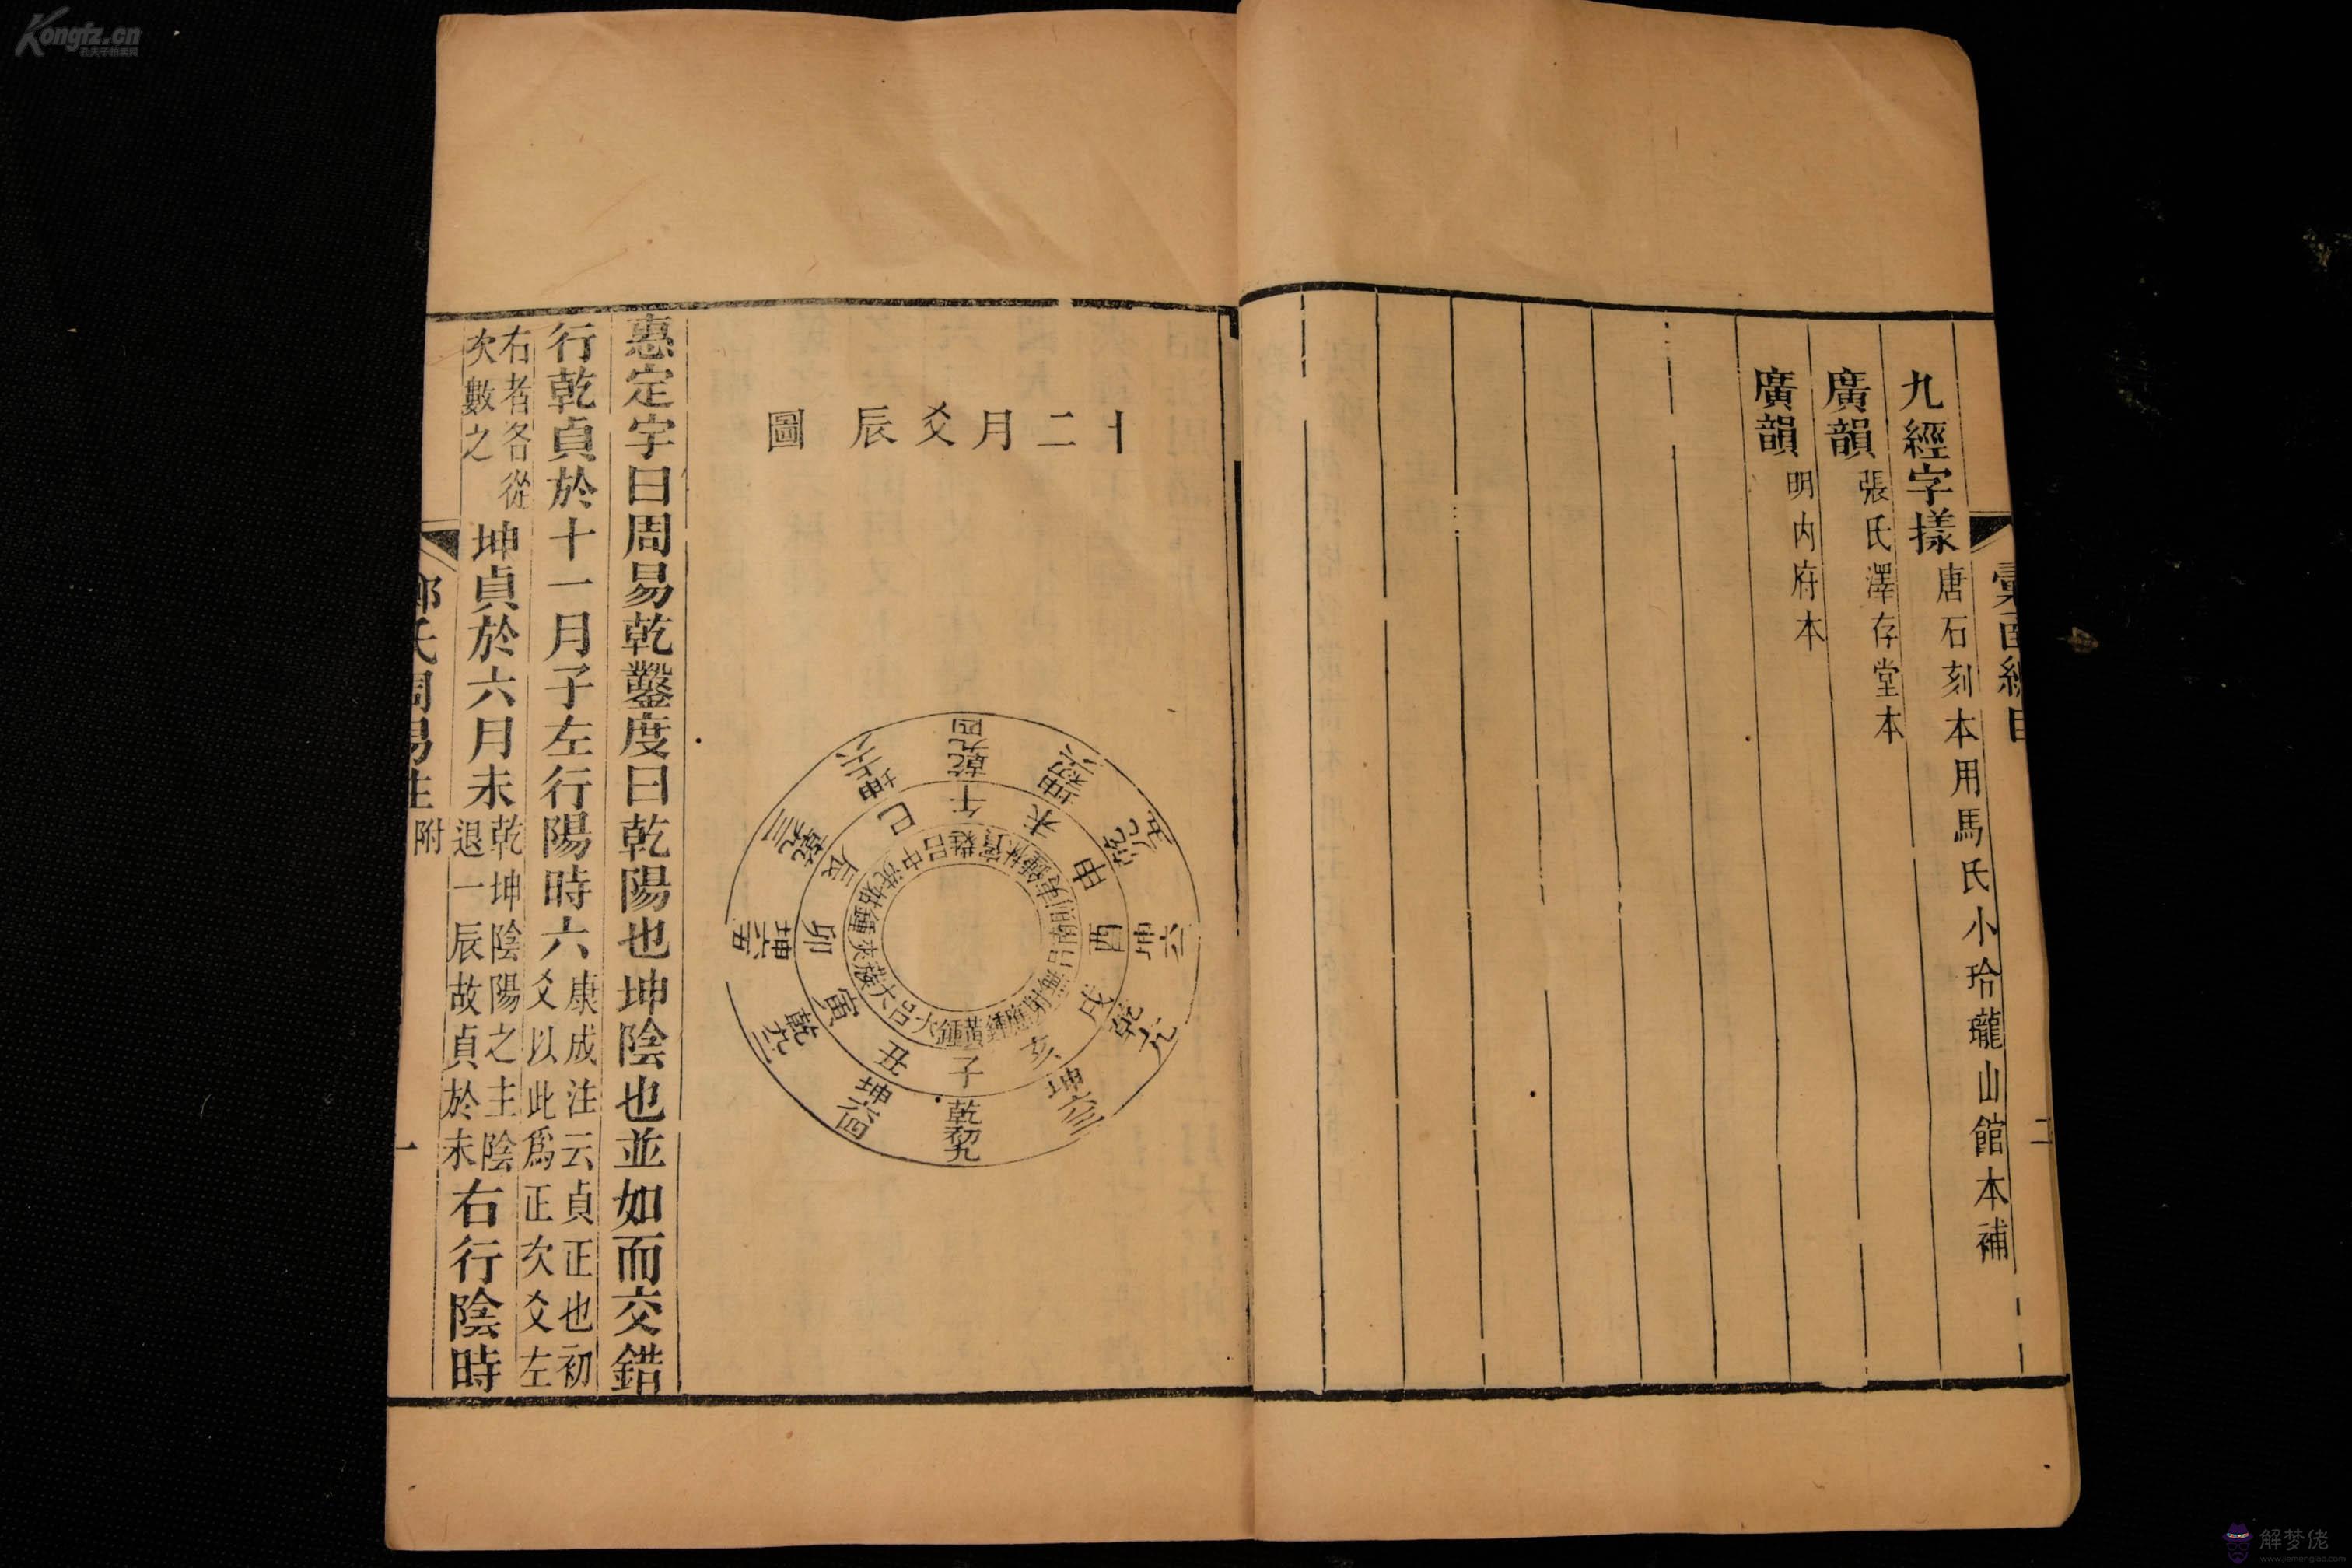 彙函總目
二
九經字㨾唐石刻本用馬氏小玲瓏山館本補
廣韻張氏澤存堂本
廣韻明内府本
十二月爻辰圖
乾九四
坤初六
乾九五
坤六二
乾上九
坤六三
乾初九
坤六四
乾九二
坤六五
乾九三
坤上六
午
未
申
酉
戌
亥
子
丑
寅
卯
辰
巳
蕤賓
林鍾
夷則
南呂
無射
應鍾
黃鍾
大呂
大蔟
夾鍾
姑洗
中呂
惠定宇曰周易乾鑿度曰乾陽也坤陰也並如而交錯
行乾貞於十一月子左行陽時六康成注云貞正也初
爻以此爲正次爻左
右者各從
次數之
坤貞於六月未乾坤陰陽之主陰
退一辰故貞於未
右行陰時
鄭氏周易注附
一
Kongfz.cn
孔夫子拍卖网
解梦佬
www.jiemenglao.com